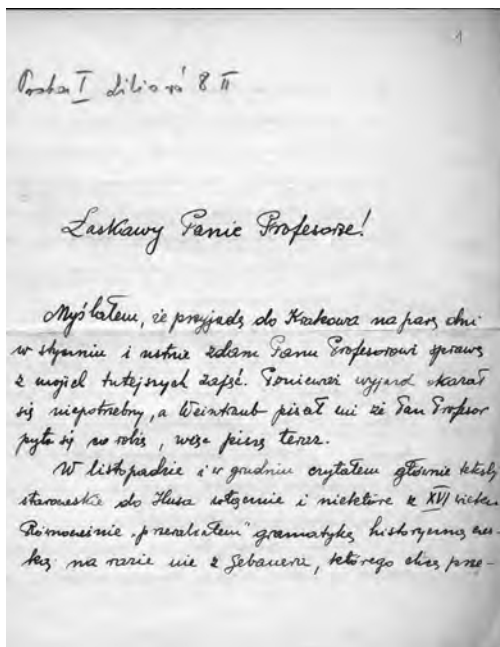 1
Praha I Liliová 8 II
Łaskawy Panie Profesorze!
Myślałem, że przyjadę do Krakowa na parę dni
w styczniu i ustnie zdam Panu Profesorowi sprawę
z moich tutejszych zajęć. Ponieważ wyjazd okazał
się niepotrzebny, a Weintraub pisał mi że Pan Profesor
pyta się co robię, więc piszę teraz.
W listopadzie i w grudniu czytałem głównie teksty
staroczeskie do Husa włącznie i niektóre z XVI wieku.
Równocześnie „przerabiałem" gramatykę historyczną czes-
ką na razie nie z Gebauera, którego chcę prze-